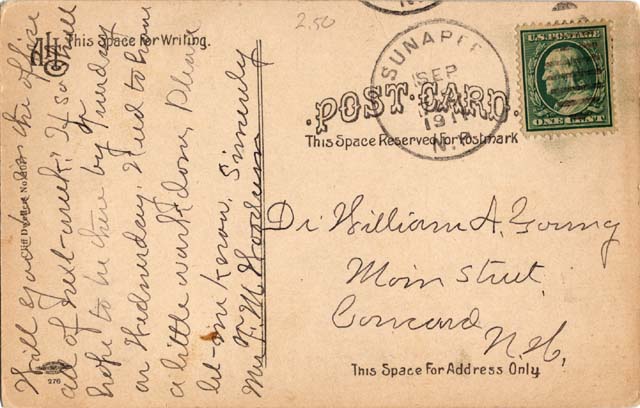 2.50
This Space for Writing.
SUNAPEE
SEP
191
N.H.
U.S. POSTAGE
ONE CENT
POST CARD.
This Space Reserved for Postmark
Will you be in the office
all of next-week? If so shall
hope to be there by Tuesday
or Wednesday. Need to have
a little work done, Please
let-me know. Sincerely
Mrs F. M.
Dr William A. Young
Main Street
Concord
N.H.
This Space For Address Only.
276